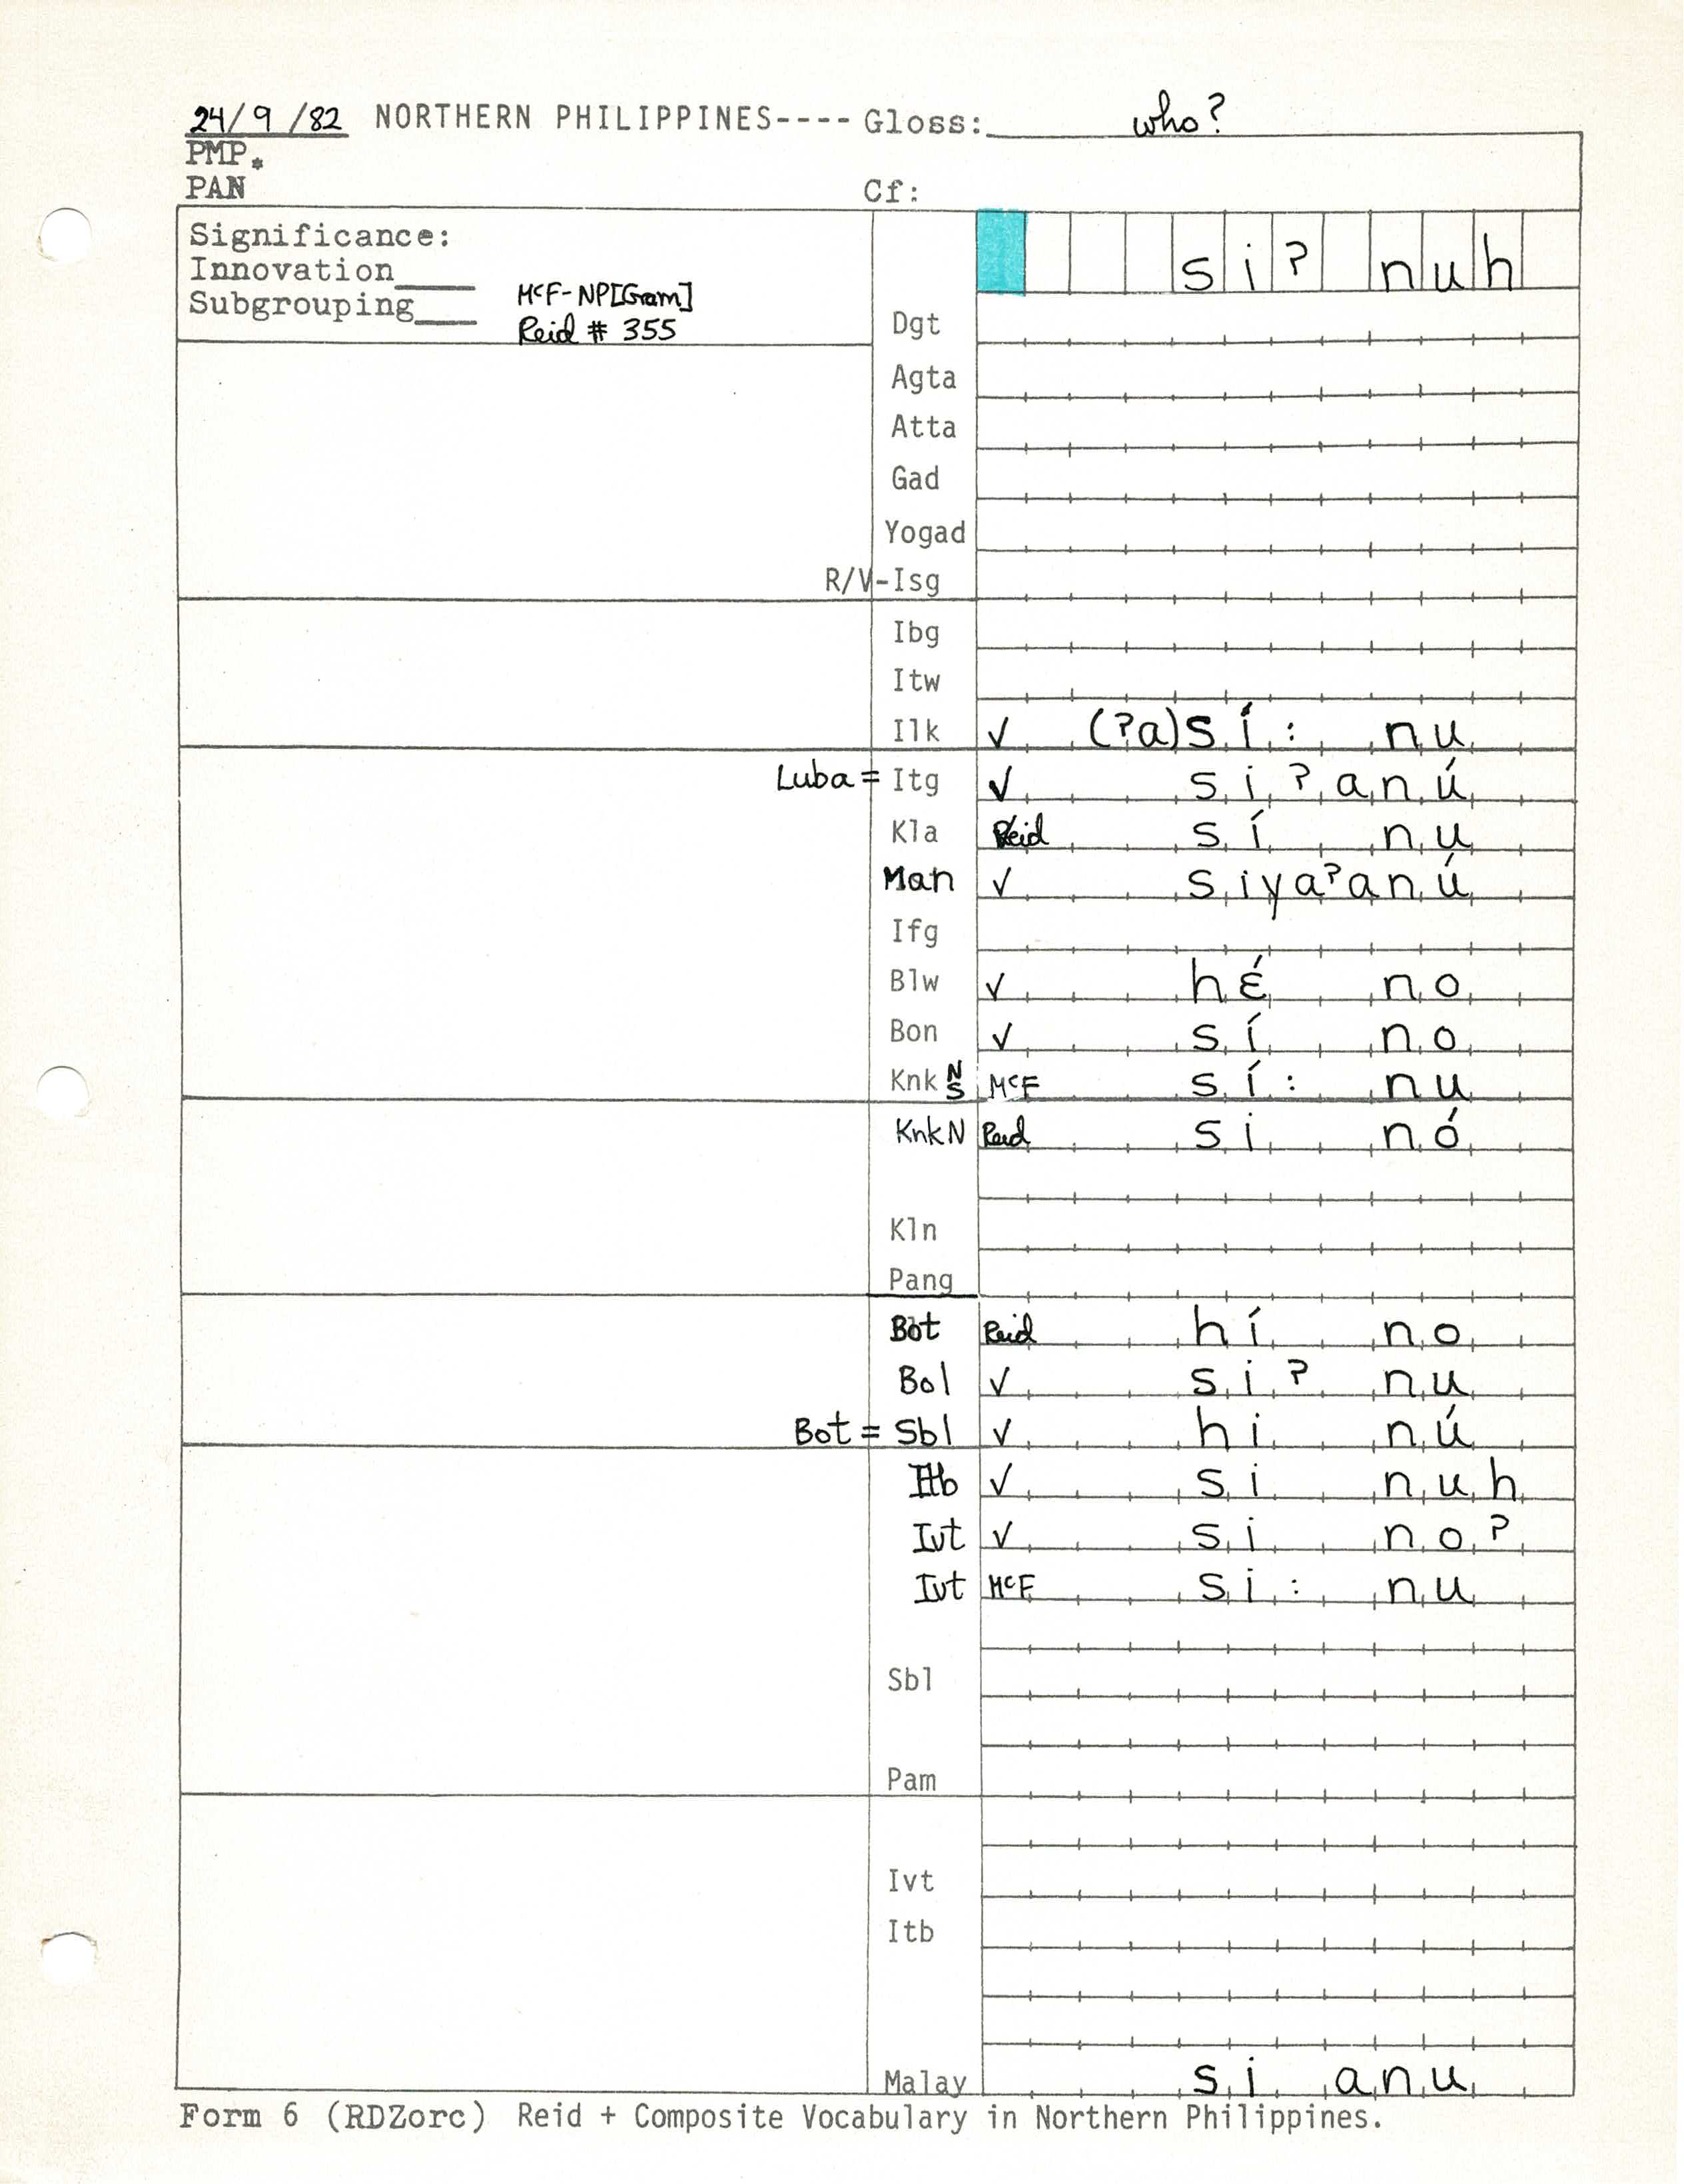 24/9/82 NORTHERN PHILIPPINES---- Gloss: who?
PMP.
PAN Cf:
Significance: si? nuh
Innovation____
Subgrouping____ McF-NP[Gram]
Reid # 355
Dgt
Agta
Atta
Gad
Yogad
R/V-Isg
Ibg
Itw
Ilk ✓ (?a)sí: nu
Luba = Itg ✓ si?anú
Kla Reid sí nu
Man ✓ siya?anú
Ifg
Blw ✓ hɛ́ no
Bon ✓ sí no
Knk N S McF sí: nu
KnkN Reid si nó
Kln
Pang
Bot Reid hí no
Bol ✓ si? nu
Bot = Sbl ✓ hi nú
Itb ✓ si nuh
Ivt ✓ si no?
Ivt McF si: nu
Sbl
Pam
Ivt
Itb
Malay si anu
Form 6 (RDZorc) Reid + Composite Vocabulary in Northern Philippines.